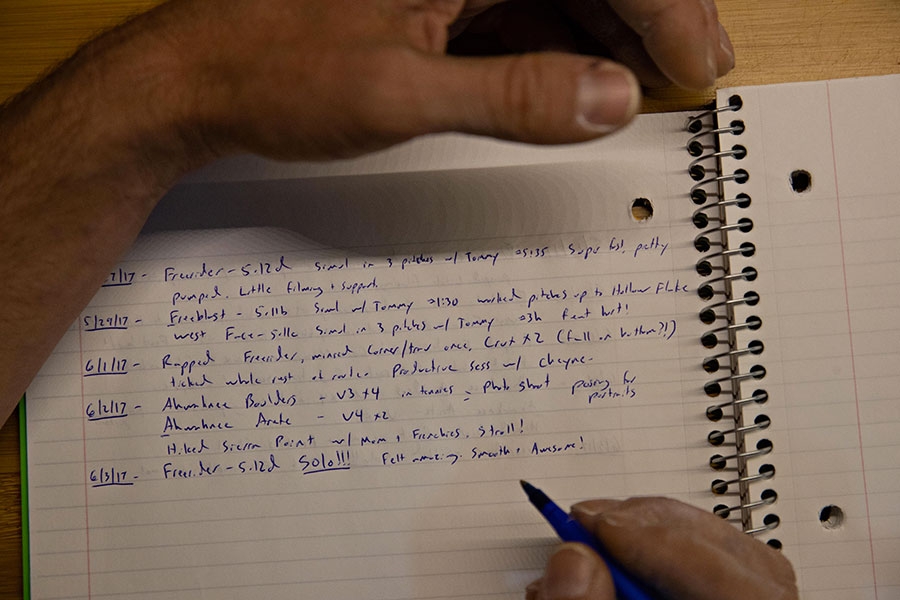 7/17 - Freerider - 5.12d Simul in 3 pitches w/ Tommy 5:35 Super fas!, petty
pumped. Little filming + support.
5/29/17 - Freeblast - 5.11b Simul w/ Tommy 1:30 worked pitches up to Hollow Flake
West Face - 5.11c Simul in 3 pitches w/ Tommy 3h feet hurt!
6/1/17 - Rapped Freerider, missed corner/trav once, Crux x2 (fall on bottom?!)
ticked whole rest of route. Productive sess w/ Cheyne.
6/2/17 - Ahwahnee Boulders - V3 x4 in tennies - Photo shoot posing for
portraits
Ahwahnee Arete - V4 x2
Hiked Sierra Point w/ Mom + Frenchies. Stroll!
6/3/17 - Freerider - 5.12d Solo!!! Felt amazing. Smooth + Awesome!